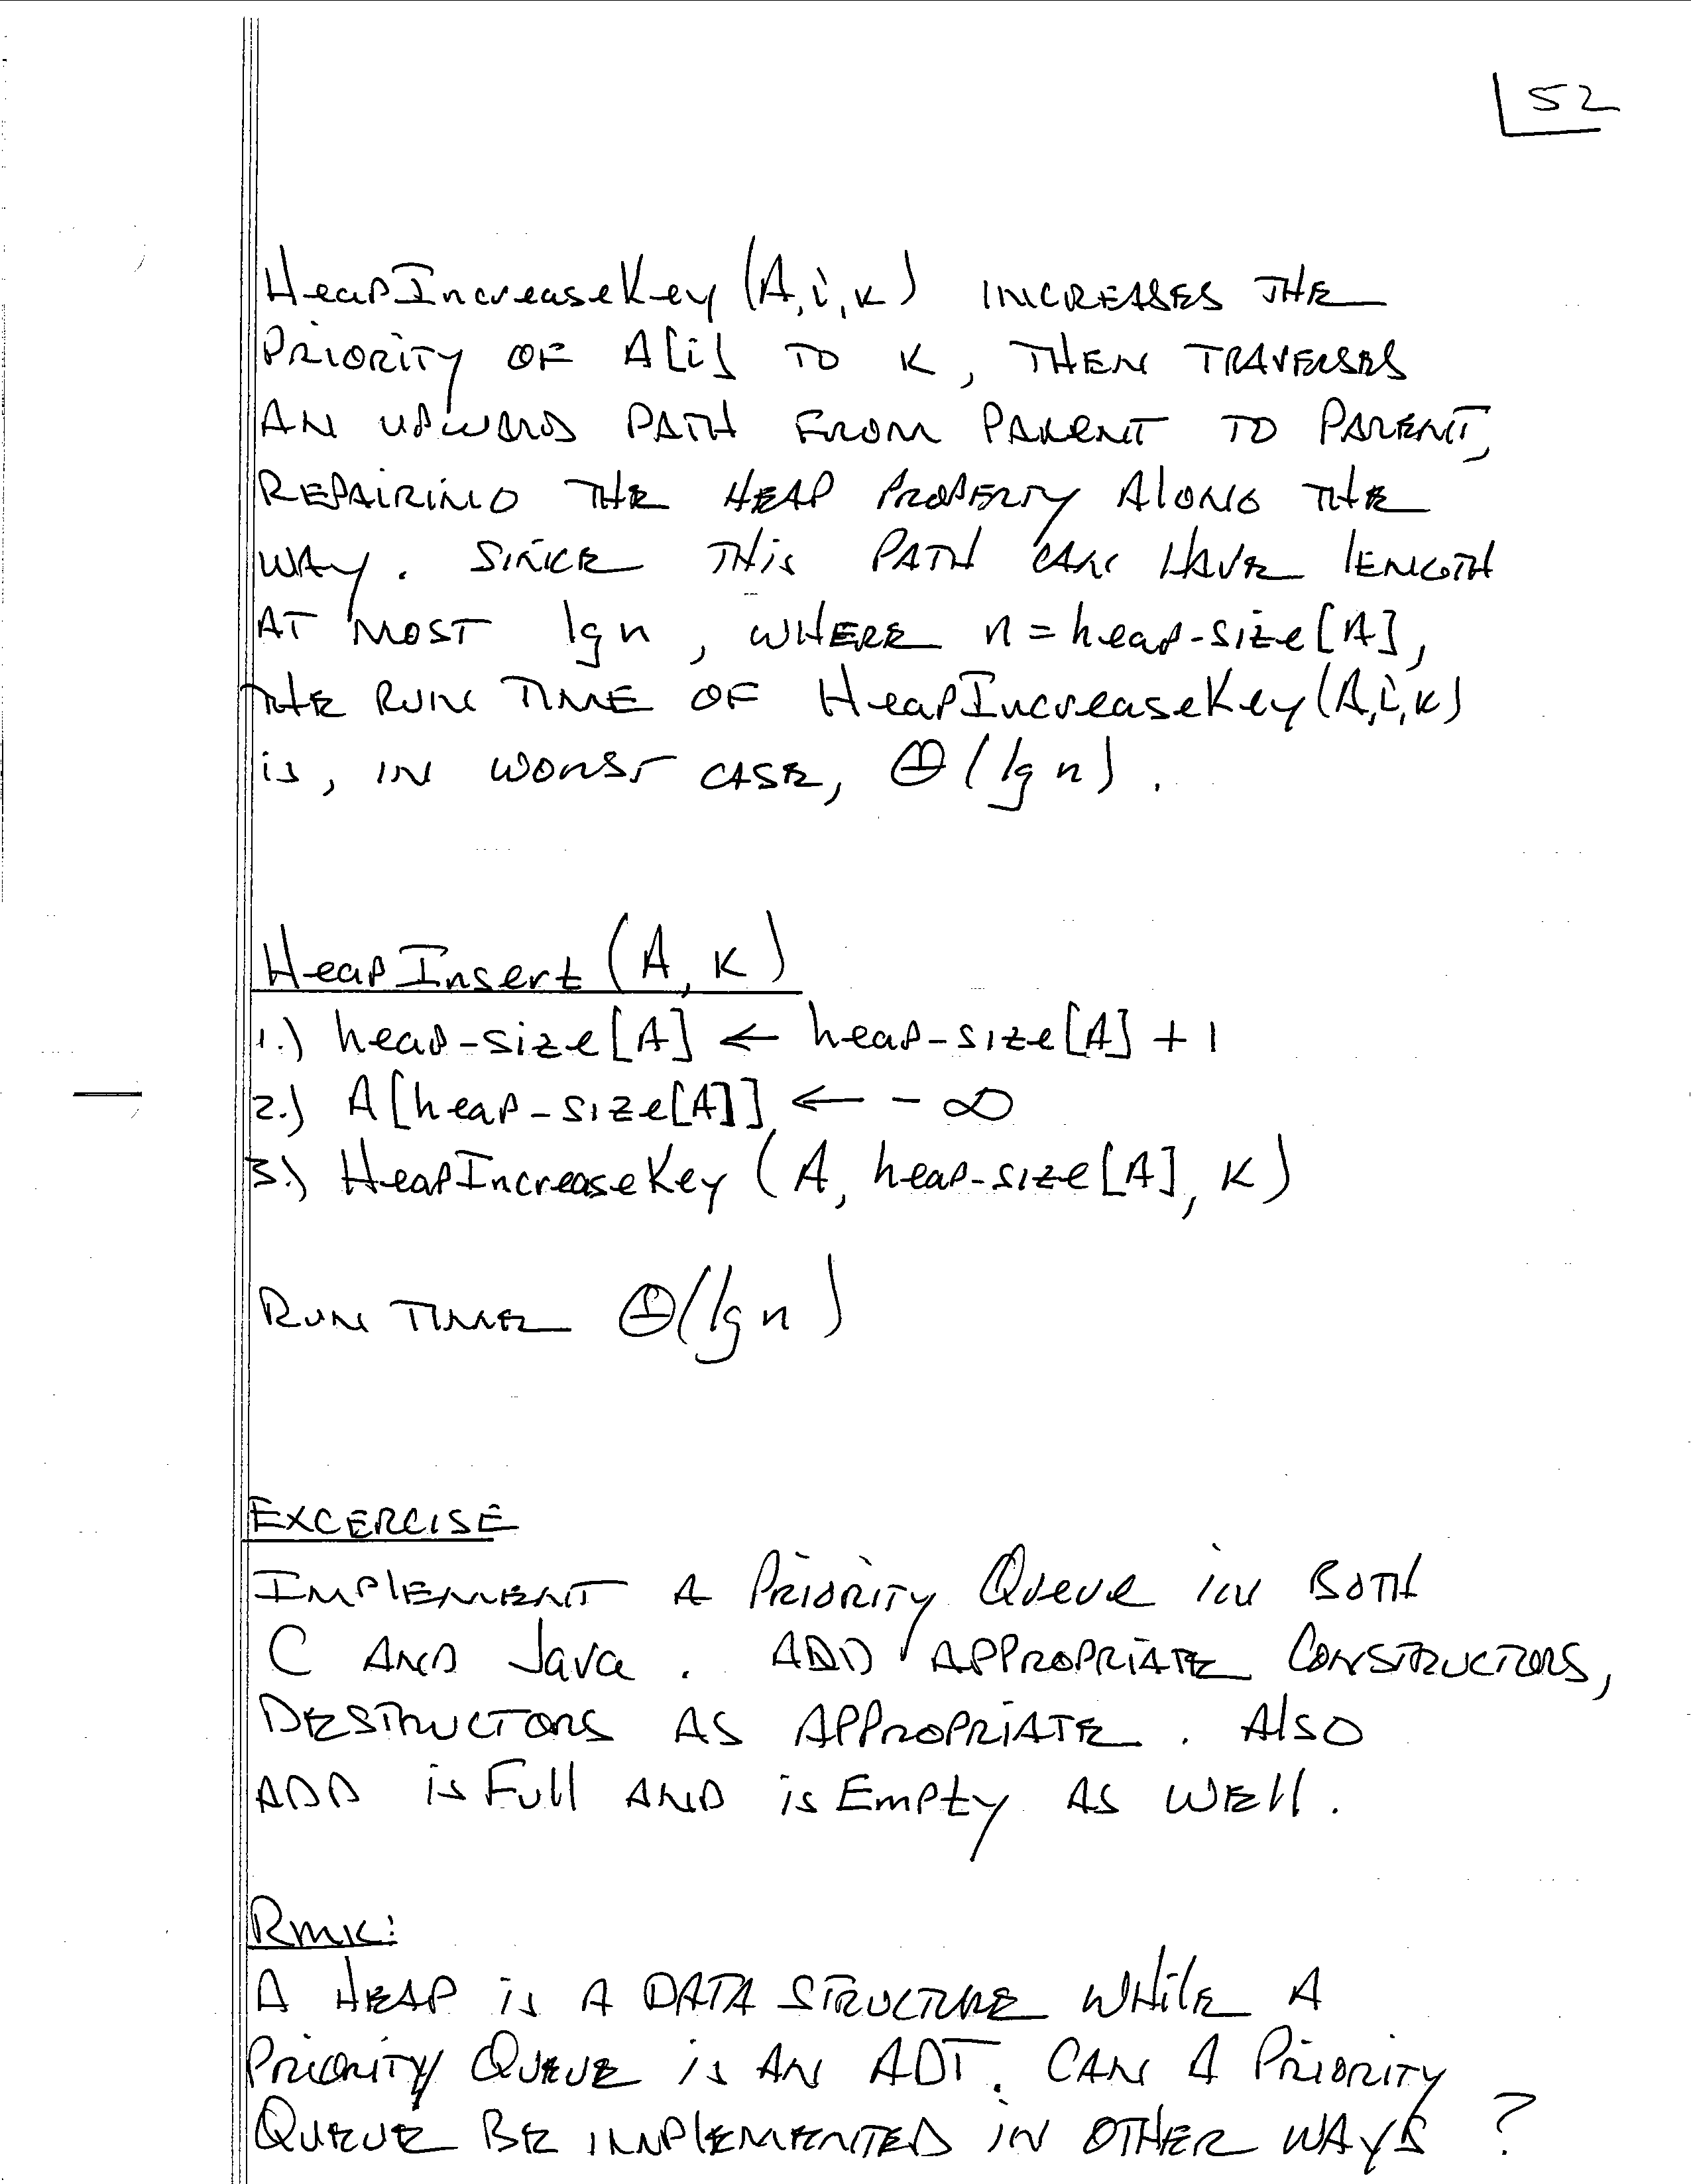 52
HeapIncreaseKey (A, i, k) INCREASES THE
PRIORITY OF A[i] TO K, THEN TRAVERSES
AN UPWARD PATH FROM PARENT TO PARENT,
REPAIRING THE HEAP PROPERTY ALONG THE
WAY. SINCE THIS PATH CAN HAVE LENGTH
AT MOST lg n, WHERE n = heap-size[A],
THE RUN TIME OF HeapIncreaseKey(A, i, k)
is, IN WORST CASE, Θ(lg n).
HeapInsert (A, K)
1.) heap-size[A] ← heap-size[A] + 1
2.) A[heap-size[A]] ← - ∞
3.) HeapIncreaseKey (A, heap-size[A], K)
RUN TIME Θ(lg n)
EXCERCISE
IMPLEMENT A PRIORITY QUEUE IN BOTH
C AND Java. ADD APPROPRIATE CONSTRUCTORS,
DESTRUCTORS AS APPROPRIATE. Also
ADD isFull AND isEmpty AS WELL.
Rmk:
A HEAP is A DATA STRUCTURE WHILE A
PRIORITY QUEUE is AN ADT. CAN A PRIORITY
QUEUE BE IMPLEMENTED IN OTHER WAYS?